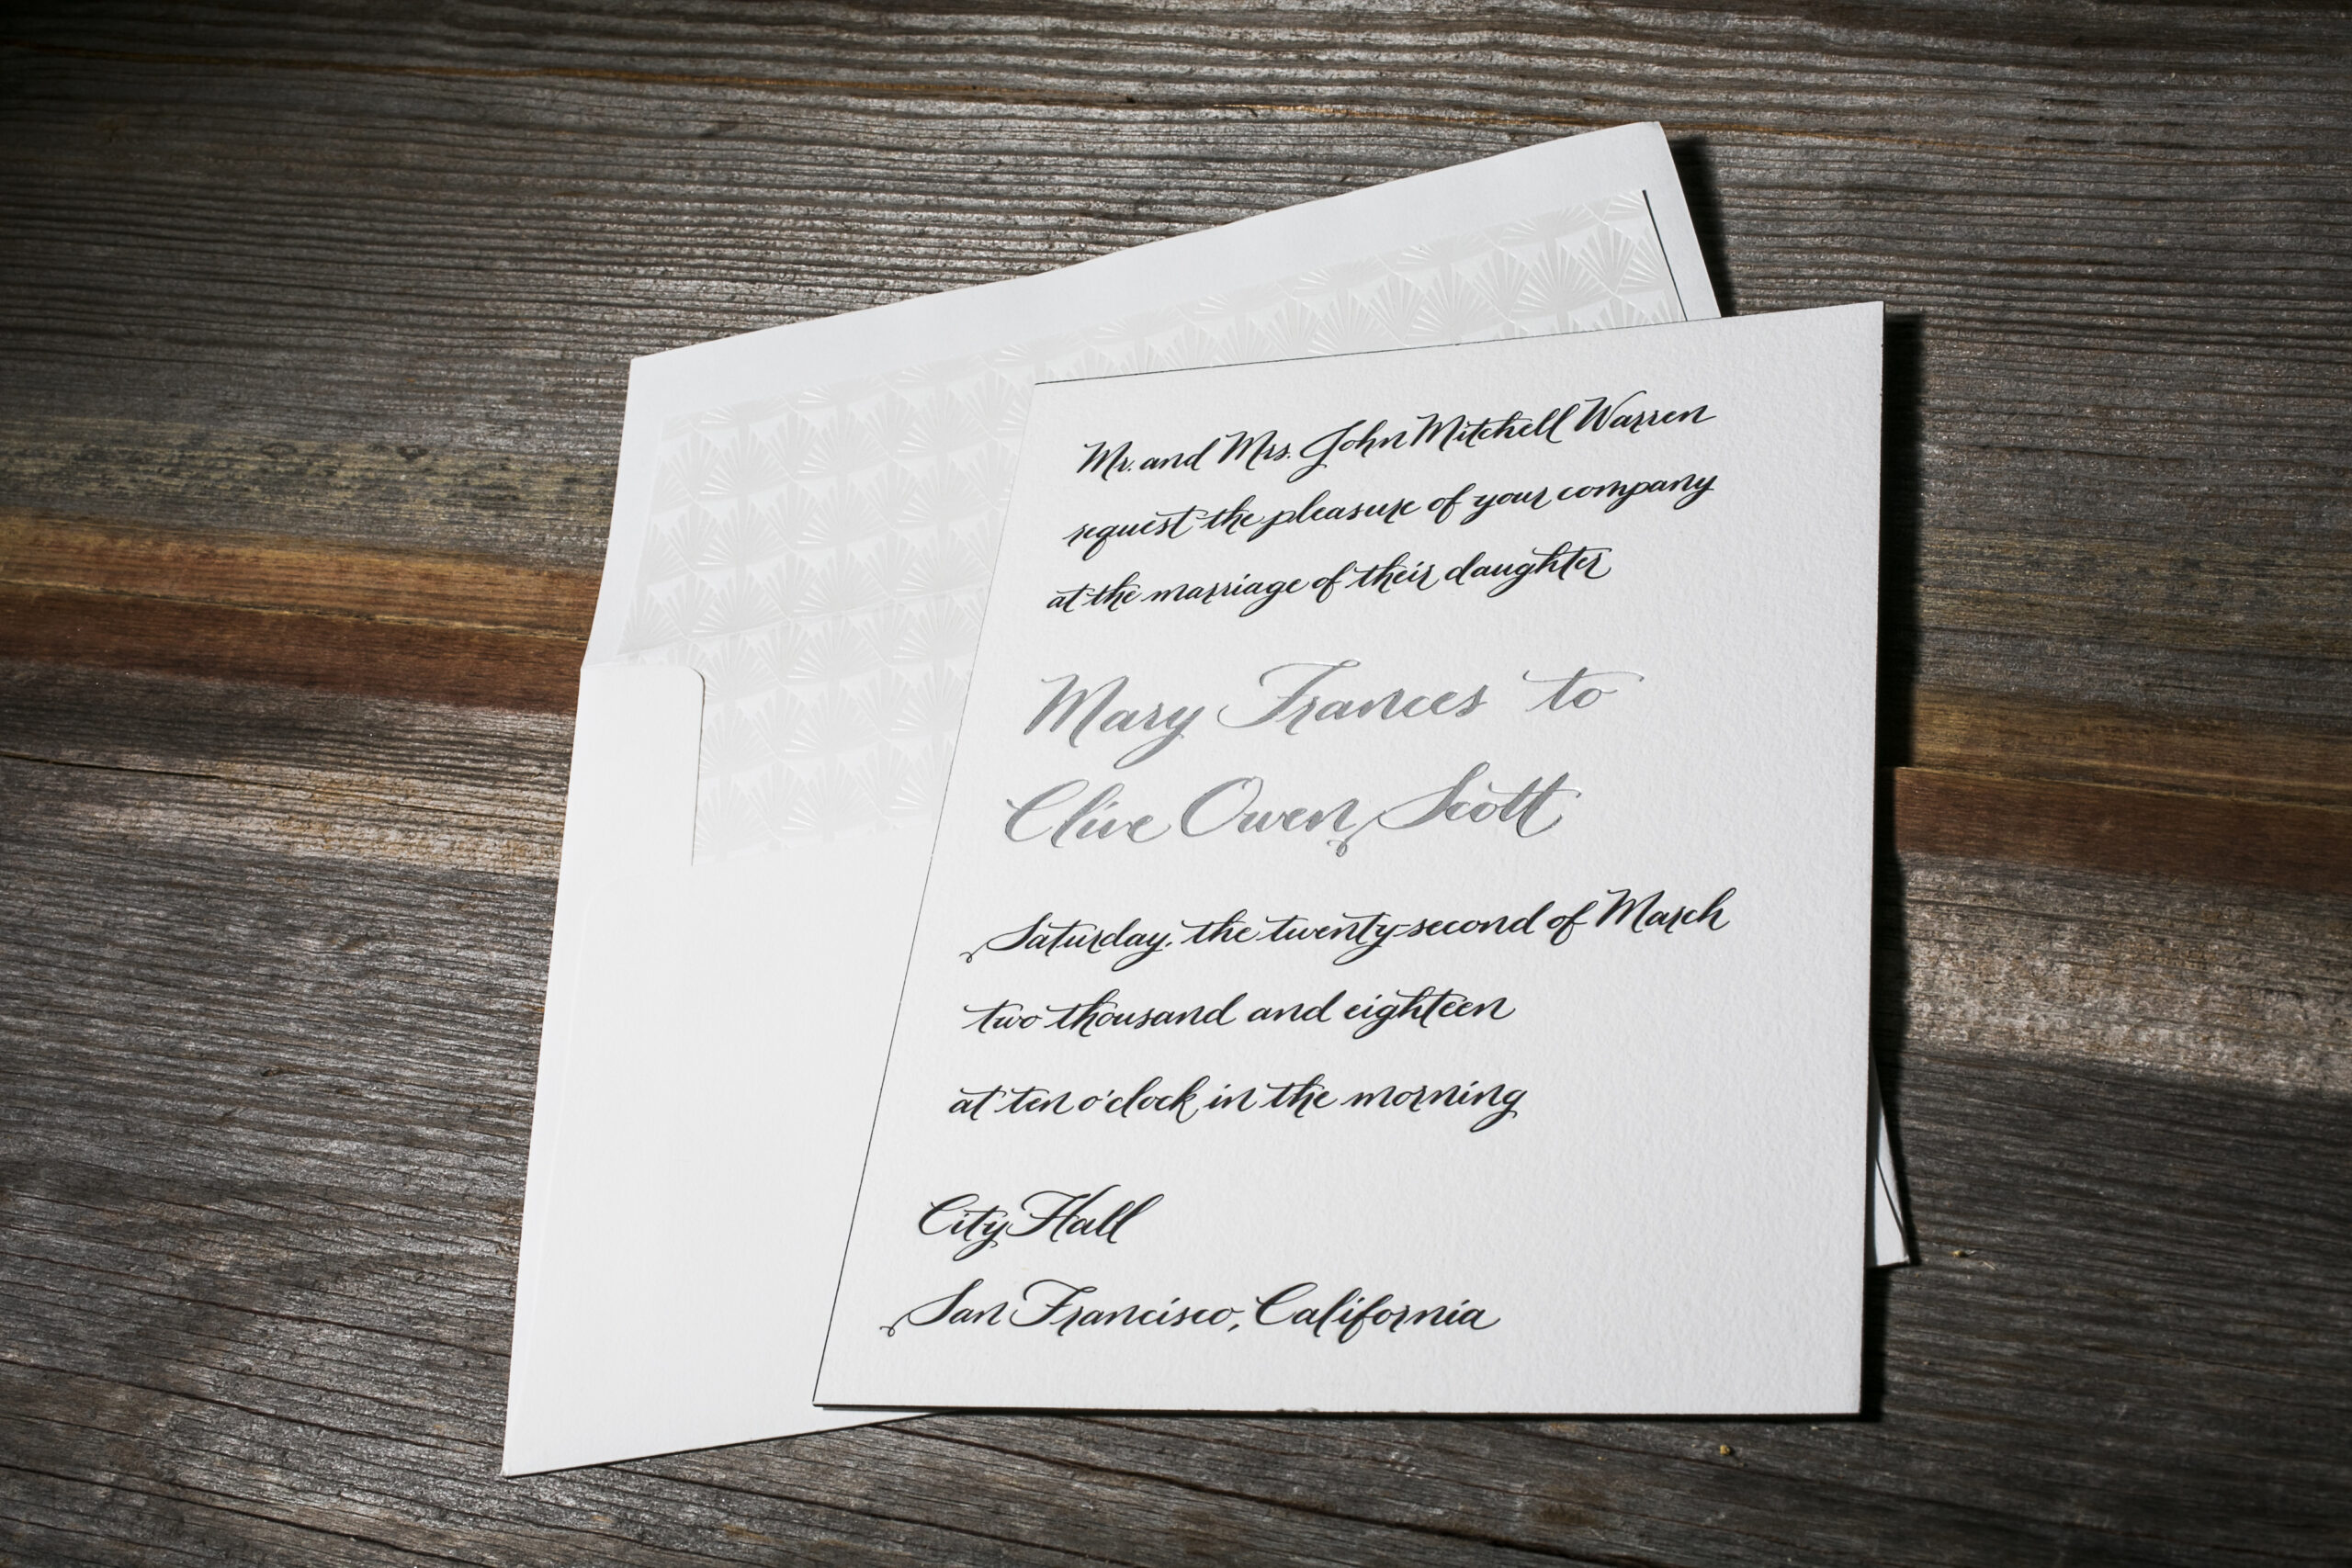 Mr. and Mrs. John Mitchell Warren
request the pleasure of your company
at the marriage of their daughter
Mary Frances to
Clive Owen Scott
Saturday, the twenty-second of March
two thousand and eighteen
at ten o'clock in the morning
City Hall
San Francisco, California